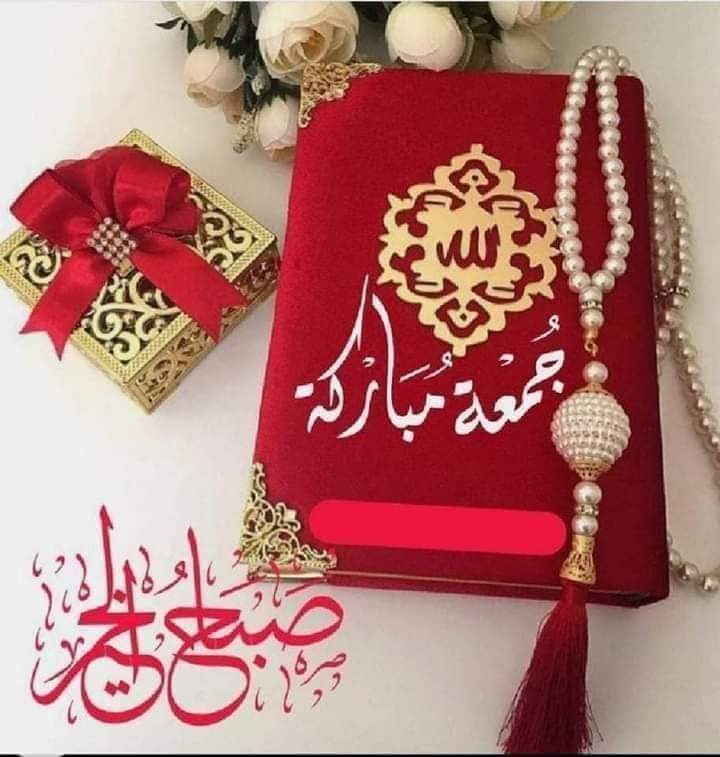 الله
جُمْعَة مُبَارَكة
صَبَاحُ الخير